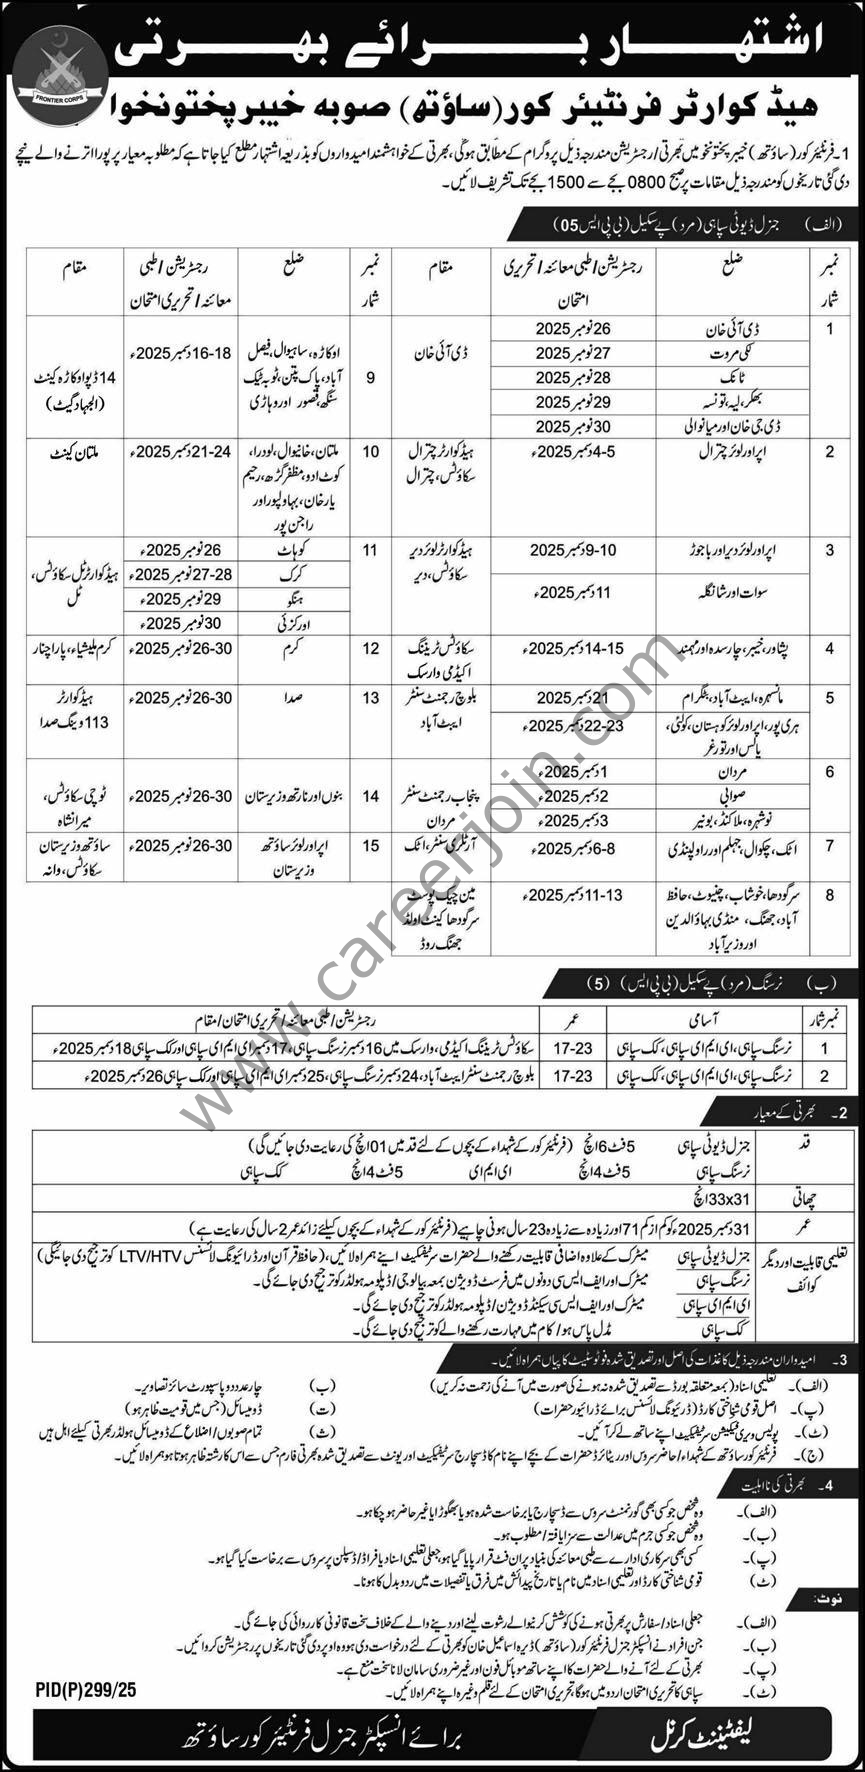 اشتہار برائے بھرتی
FRONTIER CORPS
ہیڈ کوارٹر فرنٹیئر کور (ساؤتھ) صوبہ خیبر پختونخوا
1۔ فرنٹیئر کور (ساؤتھ) خیبر پختونخوا میں بھرتی/رجسٹریشن مندرجہ ذیل پروگرام کے مطابق ہوگی، بھرتی کے خواہشمند امیدواروں کو بذریعہ اشتہار مطلع کیا جاتا ہے کہ مطلوبہ معیار پر پورا اترنے والے نیچے
دی گئی تاریخوں کو مندرجہ ذیل مقامات پر صبح 0800 بجے سے 1500 بجے تک تشریف لائیں۔
(الف) جنرل ڈیوٹی سپاہی (مرد) پے سکیل (بی پی ایس 05)
نمبر شمار ضلع رجسٹریشن/طبی معائنہ/تحریری امتحان مقام
1 ڈی آئی خان 26 نومبر 2025 ڈی آئی خان
لکی مروت 27 نومبر 2025
ٹانک 28 نومبر 2025
بھکر، لیہ، تونسہ 29 نومبر 2025
ڈی جی خان اور میانوالی 30 نومبر 2025
2 اپر اور لوئر چترال 4-5 دسمبر 2025ء ہیڈ کوارٹر چترال سکاؤٹس، چترال
3 اپر اور لوئر دیر اور باجوڑ 9-10 دسمبر 2025 ہیڈ کوارٹر لوئر دیر سکاؤٹس، دیر
سوات اور شانگلہ 11 دسمبر 2025ء
4 پشاور، خیبر، چارسدہ اور مہمند 14-15 دسمبر 2025ء سکاؤٹس ٹریننگ اکیڈمی وارسک
5 مانسہرہ، ایبٹ آباد، بٹگرام 21 دسمبر 2025 بلوچ رجمنٹ سنٹر ایبٹ آباد
ہری پور، اپر اور لوئر کوہستان، کولئی، پالس اور تورغر 22-23 دسمبر 2025ء
6 مردان 1 دسمبر 2025ء پنجاب رجمنٹ سنٹر مردان
صوابی 2 دسمبر 2025ء
نوشہرہ، ملاکنڈ، بونیر 3 دسمبر 2025ء
7 اٹک، چکوال، جہلم اور راولپنڈی 6-8 دسمبر 2025ء آرٹلری سنٹر، اٹک
8 سرگودھا، خوشاب، چنیوٹ، حافظ آباد، جھنگ، منڈی بہاؤالدین اور وزیر آباد 11-13 دسمبر 2025ء مین چیک پوسٹ سرگودھا کینٹ اولڈ جھنگ روڈ
نمبر شمار ضلع رجسٹریشن/طبی معائنہ/تحریری امتحان مقام
9 اوکاڑہ، ساہیوال، فیصل آباد، پاک پتن، ٹوبہ ٹیک سنگھ، قصور اور وہاڑی 16-18 دسمبر 2025ء 14 ڈپو اوکاڑہ کینٹ (الجہاد گیٹ)
10 ملتان، خانیوال، لودراں، کوٹ ادو، مظفر گڑھ، رحیم یار خان، بہاولپور اور راجن پور 21-24 دسمبر 2025ء ملتان کینٹ
11 کوہاٹ 26 نومبر 2025ء ہیڈ کوارٹر ٹل سکاؤٹس، ٹل
کرک 27-28 نومبر 2025ء
ہنگو 29 نومبر 2025ء
اورکزئی 30 نومبر 2025ء
12 کرم 26-30 نومبر 2025ء کرم ملیشیاء، پارا چنار
13 صدا 26-30 نومبر 2025ء ہیڈ کوارٹر 113 ونگ صدا
14 بنوں اور نارتھ وزیرستان 26-30 نومبر 2025ء ٹوچی سکاؤٹس، میرانشاہ
15 اپر اور لوئر ساؤتھ وزیرستان 26-30 نومبر 2025ء ساؤتھ وزیرستان سکاؤٹس، وانہ
(ب) نرسنگ (مرد) پے سکیل (بی پی ایس) (5)
نمبر شمار آسامی عمر رجسٹریشن/طبی معائنہ/تحریری امتحان/مقام
1 نرسنگ سپاہی، ای ایم ای سپاہی، کک سپاہی 17-23 سکاؤٹس ٹریننگ اکیڈمی، وارسک میں 16 دسمبر نرسنگ سپاہی، 17 دسمبر ای ایم ای سپاہی اور کک سپاہی 18 دسمبر 2025ء
2 نرسنگ سپاہی، ای ایم ای سپاہی، کک سپاہی 17-23 بلوچ رجمنٹ سنٹر ایبٹ آباد، 24 دسمبر نرسنگ سپاہی، 25 دسمبر ای ایم ای سپاہی اور کک سپاہی 26 دسمبر 2025ء
2۔ بھرتی کے معیار
قد جنرل ڈیوٹی سپاہی 5 فٹ 6 انچ (فرنٹیئر کور کے شہداء کے بچوں کے لئے قد میں 01 انچ کی رعایت دی جائیں گی)
نرسنگ سپاہی 5 فٹ 4 انچ ای ایم ای 5 فٹ 4 انچ کک سپاہی
چھاتی 33x31 انچ
عمر 31 دسمبر 2025ء کو کم از کم 17 اور زیادہ سے زیادہ 23 سال ہونی چاہیے (فرنٹیئر کور کے شہداء کے بچوں کیلئے زائد عمر 2 سال کی رعایت ہے)
تعلیمی قابلیت اور دیگر کوائف جنرل ڈیوٹی سپاہی میٹرک کے علاوہ اضافی قابلیت رکھنے والے حضرات سرٹیفکیٹ اپنے ہمراہ لائیں، (حافظ قرآن اور ڈرائیونگ لائسنس LTV/HTV کو ترجیح دی جائیگی)
نرسنگ سپاہی میٹرک اور ایف ایس سی دونوں میں فرسٹ ڈویژن بمعہ بیالوجی/ڈپلومہ ہولڈر کو ترجیح دی جائے گی۔
ای ایم ای سپاہی میٹرک اور ایف ایس سی سیکنڈ ڈویژن/ڈپلومہ ہولڈر کو ترجیح دی جائے گی۔
کک سپاہی مڈل پاس ہو/کام میں مہارت رکھنے والے کو ترجیح دی جائے گی۔
3۔ امیدواران مندرجہ ذیل کاغذات کی اصل اور تصدیق شدہ فوٹو سٹیٹ کاپیاں ہمراہ لائیں۔
(الف)۔ تعلیمی اسناد (بمعہ متعلقہ بورڈ سے تصدیق شدہ نہ ہونے کی صورت میں آنے کی زحمت نہ کریں) (ب) چار عدد پاسپورٹ سائز تصاویر۔
(پ)۔ اصل قومی شناختی کارڈ (ڈرائیونگ لائسنس برائے ڈرائیور حضرات) (ت) ڈومیسائل (جس میں قومیت ظاہر ہو)
(ٹ)۔ پولیس ویری فیکیشن سرٹیفکیٹ اپنے ساتھ لے کر آئیں۔ (ث) تمام صوبوں/اضلاع کے ڈومیسائل ہولڈر بھرتی کیلئے اہل ہیں
(ج)۔ فرنٹیئر کور ساؤتھ کے شہداء/حاضر سروس اور ریٹائرڈ حضرات کے بچے اپنے نام کا ڈسچارج سرٹیفکیٹ اور یونٹ سے تصدیق شدہ بھرتی فارم جس سے اس کا رشتہ ظاہر ہوتا ہو ہمراہ لائیں۔
4۔ بھرتی کی نااہلیت
(الف)۔ وہ شخص جو کسی بھی گورنمنٹ سروس سے ڈسچارج یا برخاست شدہ ہو یا بھگوڑا یا غیر حاضر ہو چکا ہو۔
(ب)۔ وہ شخص جو کسی جرم میں عدالت سے سزا یافتہ/مطلوب ہو۔
(پ)۔ کسی بھی سرکاری ادارے سے طبی معائنہ کی بنیاد پر ان فٹ قرار پایا گیا ہو، جعلی تعلیمی اسناد یا فراڈ/ڈسپلن پر سروس سے برخاست کیا گیا ہو۔
(ت) قومی شناختی کارڈ اور تعلیمی اسناد میں نام یا تاریخ پیدائش میں فرق یا تفصیلات میں ردوبدل کا ہونا۔
نوٹ:
(الف)۔ جعلی اسناد/سفارش پر بھرتی ہونے کی کوشش کرنیوالے رشوت لینے اور دینے والے کے خلاف سخت قانونی کارروائی کی جائے گی۔
(ب)۔ جن افراد نے انسپکٹر جنرل فرنٹیئر کور (ساؤتھ) ڈیرہ اسماعیل خان کو بھرتی کے لئے درخواست دی ہو وہ اوپر دی گئی تاریخوں پر رجسٹریشن کروائیں۔
(پ)۔ بھرتی کے لئے آنے والے حضرات کا اپنے ساتھ موبائل فون اور غیر ضروری سامان لانا سخت منع ہے۔
(ت)۔ سپاہی کا تحریری امتحان اردو میں ہوگا، تحریری امتحان کے لئے قلم وغیرہ اپنے ہمراہ لائیں۔
PID(P)299/25
لیفٹیننٹ کرنل
برائے انسپکٹر جنرل فرنٹیئر کور ساؤتھ
www.careerjoin.com